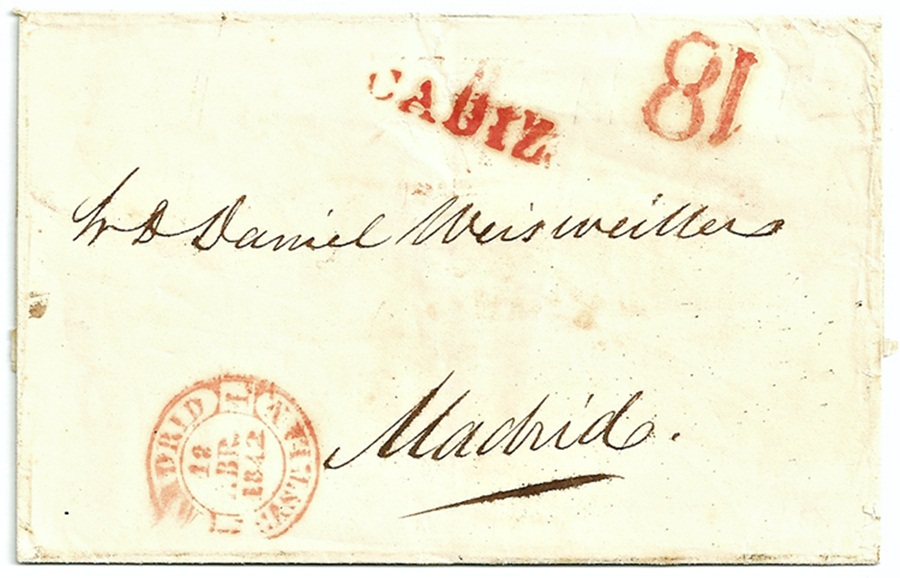 CADIZ
18
Sr D Daniel Weisweiller
Madrid.
MADRID 1
18
ABR.
1842